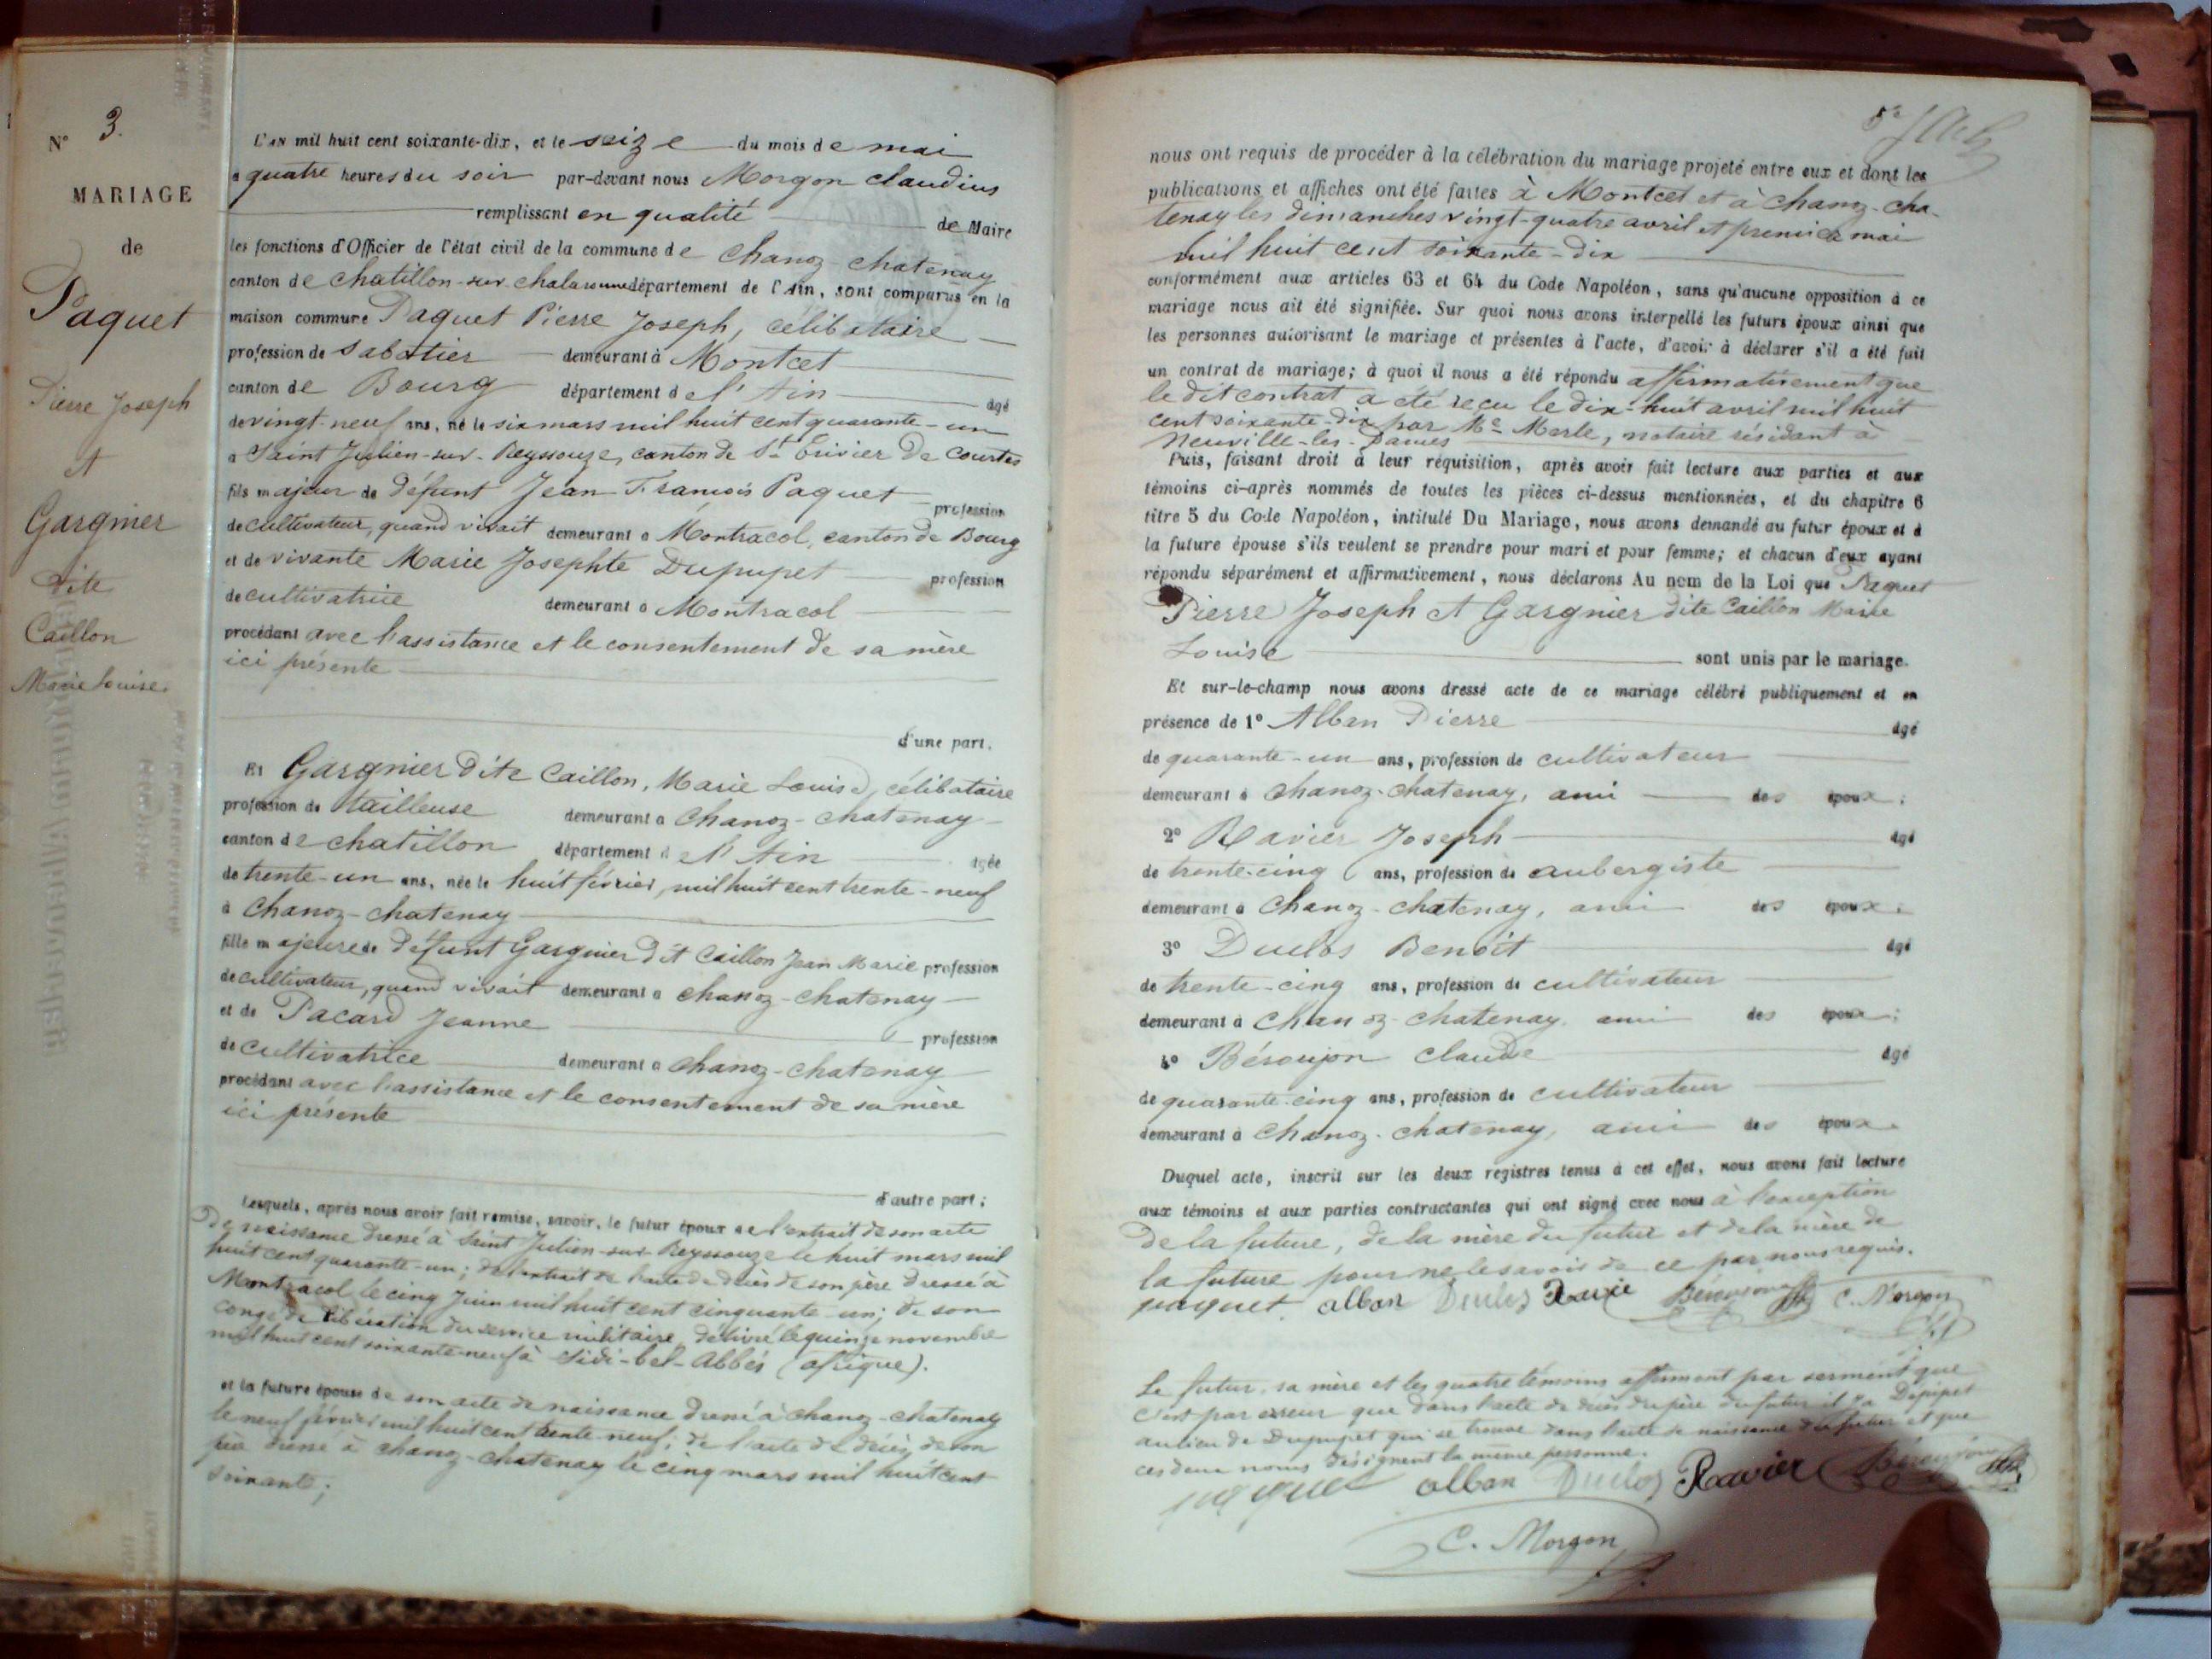 N° 3.
MARIAGE
de
Paquet
Pierre Joseph
et
Gargnier
dite
Caillon
Marie Louise.
L'AN mil huit cent soixante-dix, et le seize du mois de mai
a quatre heures du soir par-devant nous Morgon Claudius
remplissant en qualité de Maire
les fonctions d'Officier de l'état civil de la commune de Chanoz-Chatenay
canton de Chatillon-sur-Chalaronne département de l'Ain, sont comparus en la
maison commune Paquet Pierre Joseph, célibataire
profession de sabotier demeurant à Montcet
canton de Bourg département de l'Ain âgé
de vingt-neuf ans, né le six mars mil huit cent quarante-un
a Saint Julien-sur-Reyssouze, canton de St Trivier de Courtes
fils majeur de défunt Jean François Paquet profession
de cultivateur, quand vivait demeurant a Montracol, canton de Bourg
et de vivante Marie Josephte Dupupet profession
de cultivatrice demeurant à Montracol
procédant avec l'assistance et le consentement de sa mère
ici présente
d'une part.
Et Gargnier dite Caillon, Marie Louise, célibataire
profession de tailleuse demeurant a Chanoz-Chatenay
canton de Chatillon département de l'Ain âgée
de trente-un ans, née le huit février, mil huit cent trente-neuf
à Chanoz-Chatenay
fille majeure de défunt Gargnier dit Caillon Jean Marie profession
de cultivateur, quand vivait demeurant a Chanoz-Chatenay
et de Pacard Jeanne profession
de cultivatrice demeurant a Chanoz-Chatenay
procédant avec l'assistance et le consentement de sa mère
ici présente
d'autre part;
Lesquels, après nous avoir fait remise, savoir, le futur époux de l'extrait de son acte
de naissance dressé à Saint Julien-sur-Reyssouze le huit mars mil
huit cent quarante-un; de l'extrait de l'acte de décès de son père dressé à
Montracol le cinq Juin mil huit cent cinquante-un; de son
congé de libération du service militaire délivré le quinze novembre
mil huit cent soixante-neuf à Sidi-bel-Abbès (afrique).
et la future épouse de son acte de naissance dressé à Chanoz-Chatenay
le neuf février mil huit cent trente neuf; de l'acte de décès de son
père dressé à Chanoz-Chatenay le cinq mars mil huit cent
soixante;
nous ont requis de procéder à la célébration du mariage projeté entre eux et dont les
publications et affiches ont été faites à Montcet et à Chanoz-Cha-
tenay les dimanches vingt-quatre avril et premier mai
mil huit cent soixante-dix
conformément aux articles 63 et 64 du Code Napoléon, sans qu'aucune opposition à ce
mariage nous ait été signifiée. Sur quoi nous avons interpellé les futurs époux ainsi que
les personnes autorisant le mariage et présentes à l'acte, d'avoir à déclarer s'il a été fait
un contrat de mariage; à quoi il nous a été répondu affirmativement que
le dit contrat a été reçu le dix-huit avril mil huit
cent soixante-dix par Me Merle, notaire résidant à
Neuville-les-Dames
Puis, faisant droit à leur réquisition, après avoir fait lecture aux parties et aux
témoins ci-après nommés de toutes les pièces ci-dessus mentionnées, et du chapitre 6
titre 5 du Code Napoléon, intitulé Du Mariage, nous avons demandé au futur époux et à
la future épouse s'ils veulent se prendre pour mari et pour femme; et chacun d'eux ayant
répondu séparément et affirmativement, nous déclarons Au nom de la Loi que Paquet
Pierre Joseph et Gargnier dite Caillon Marie
Louise sont unis par le mariage.
Et sur-le-champ nous avons dressé acte de ce mariage célébré publiquement et en
présence de 1° Alban Pierre âgé
de quarante-un ans, profession de cultivateur
demeurant à Chanoz-Chatenay, ami des époux;
2° Ravier Joseph âgé
de trente-cinq ans, profession de aubergiste
demeurant à Chanoz-Chatenay, ami des époux;
3° Duclos Benoit âgé
de trente-cinq ans, profession de cultivateur
demeurant à Chanoz-Chatenay, ami des époux;
4° Béroujon Claude âgé
de quarante-cinq ans, profession de cultivateur
demeurant à Chanoz-Chatenay, ami des époux.
Duquel acte, inscrit sur les deux registres tenus à cet effet, nous avons fait lecture
aux témoins et aux parties contractantes qui ont signé avec nous à l'exception
de la future, de la mère du futur et de la mère de
la future pour ne le savoir de ce par nous requis.
paquet alban Duclos Ravier Béroujon C. Morgon
Le futur, sa mère et les quatre témoins affirment par serment que
c'est par erreur que dans l'acte de décès du père du futur il y a Dépipet
au lieu de Dupupet qui se trouve dans l'acte de naissance du futur et que
ces deux noms désignent la même personne.
paquet alban Duclos Ravier Béroujon
C. Morgon